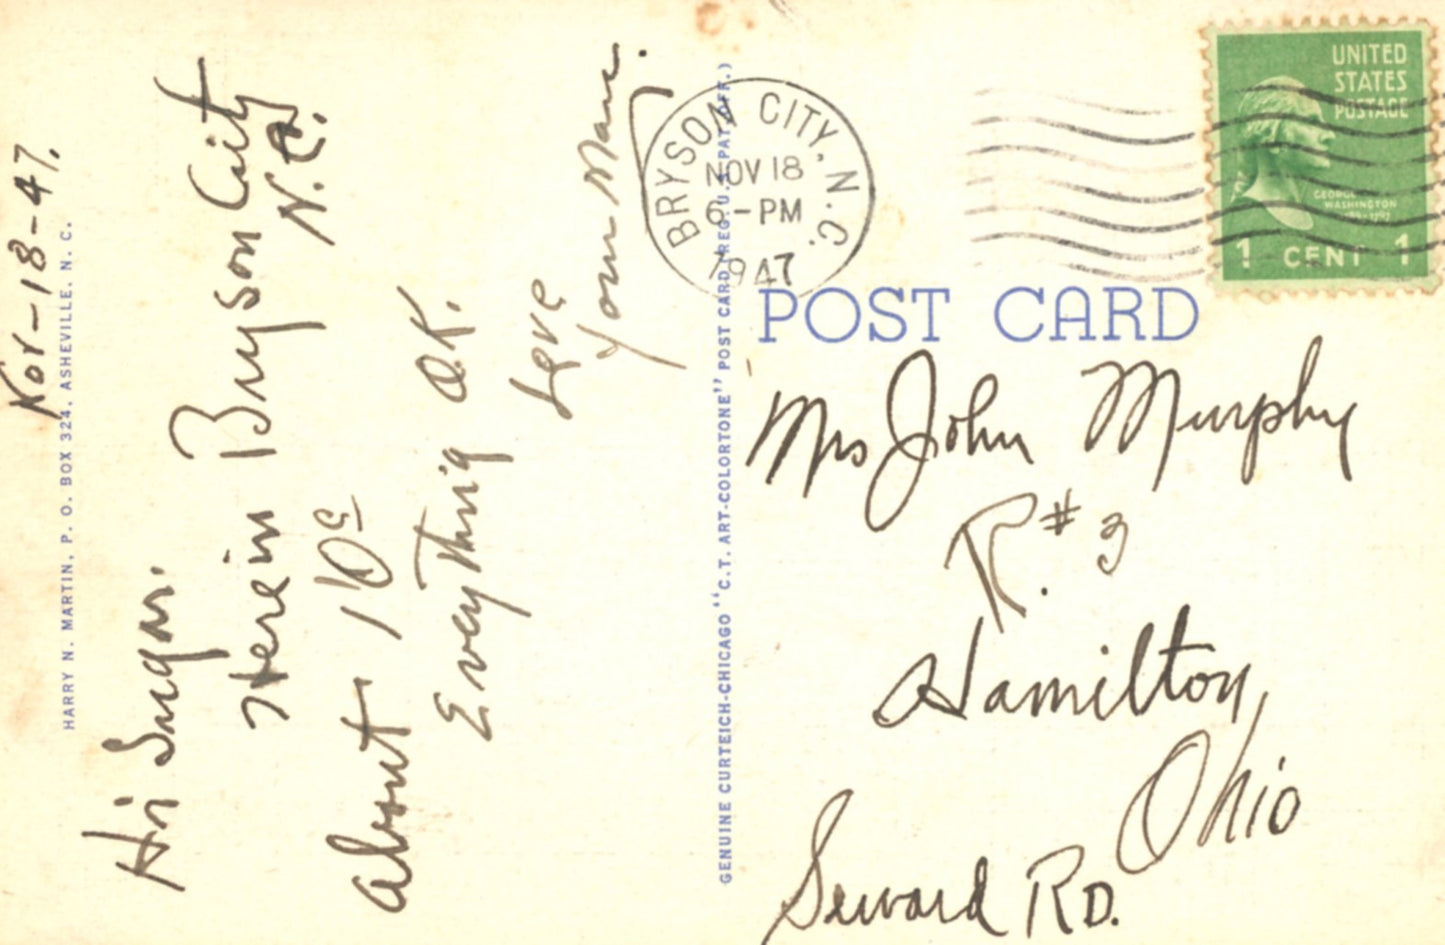 Nov-18-47.
Hi Sugar.
Here in Bryson City
N.C.
About 10c
Everything O.K.
Love
Your Man.
HARRY N. MARTIN, P. O. BOX 324, ASHEVILLE, N. C.
GENUINE CURTEICH-CHICAGO "C.T. ART-COLORTONE" POST CARD (REG. U.S. PAT. OFF.)
BRYSON CITY, N.C.
NOV 18
6-PM
1947
UNITED
STATES
POSTAGE
GEORGE
WASHINGTON
1 CENT 1
POST CARD
Mrs John Murphy
R.#3
Hamilton,
Ohio
Seward RD.